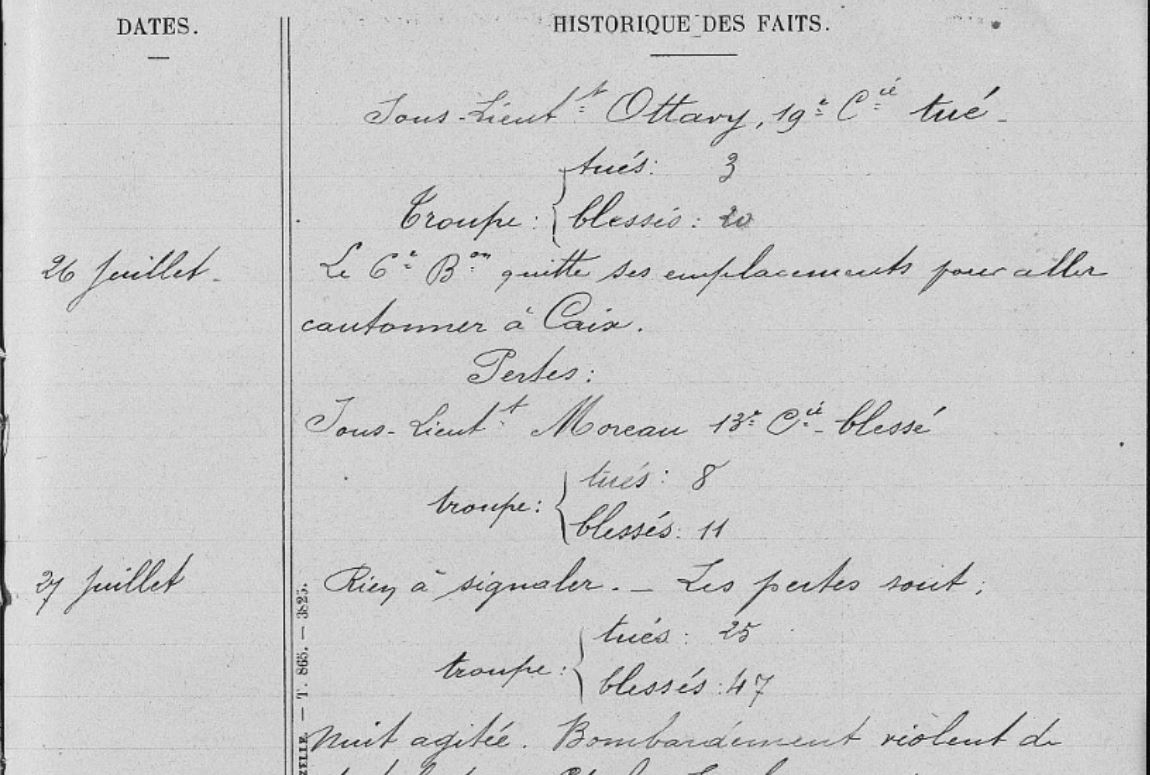 DATES.
HISTORIQUE DES FAITS.
Sous-Lieut^t Ottavy, 19e Cie tué.
Troupe: { tués: 3
blessés: 20
26 Juillet.
Le 6e Bon quitte ses emplacements pour aller
cantonner à Caix.
Pertes:
Sous-Lieut^t Moreau 13e Cie blessé
troupe: { tués: 8
blessés: 11
27 Juillet
Rien à signaler. — Les pertes sont:
troupe: { tués: 25
blessés: 47
Nuit agitée. Bombardement violent de
ZELLE. — T. 865. — 3825.